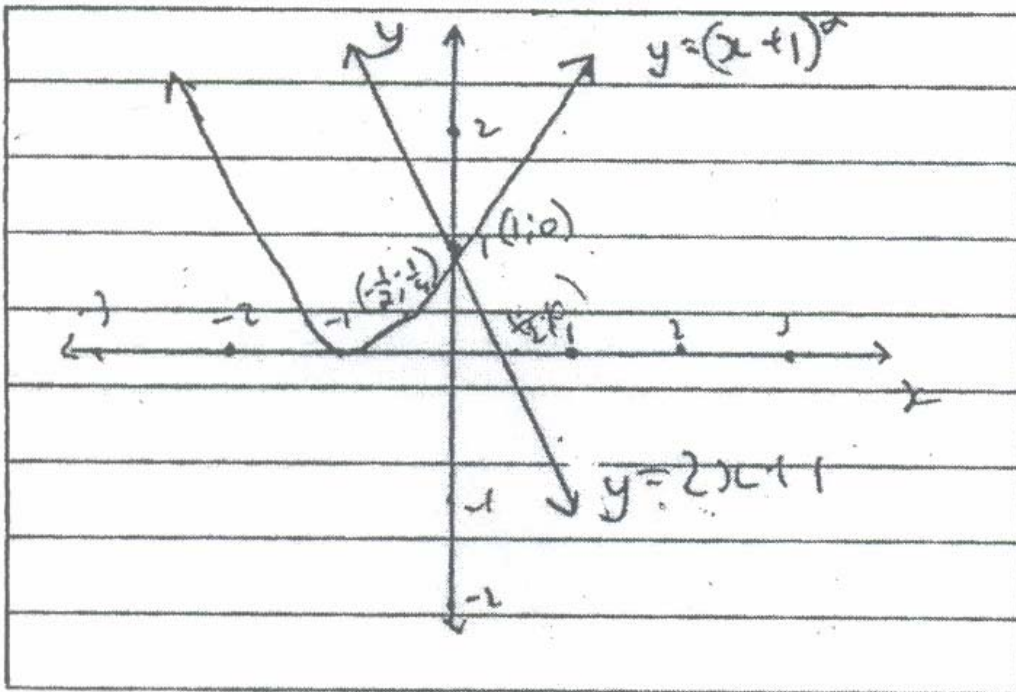 y
y=(x+1)²
2
(1;0)
(-½;¼)
-2
-1
1
2
3
x
y=2x+1
-1
-2